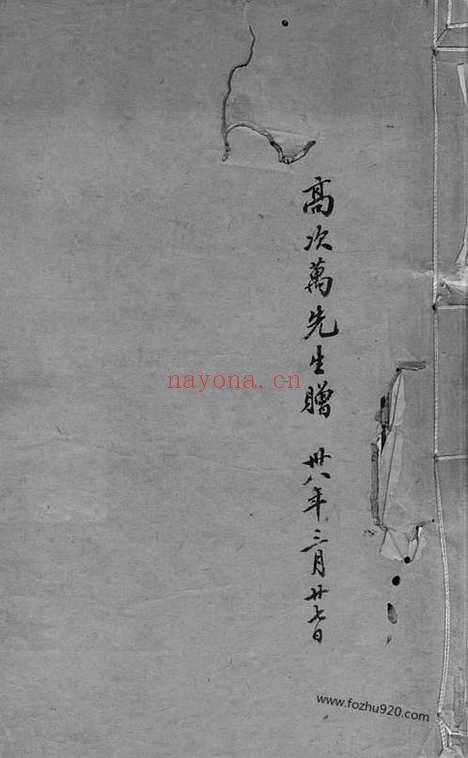 高次萬先生贈 卅八年三月廿七日
nayona.cn
www.fozhu920.com